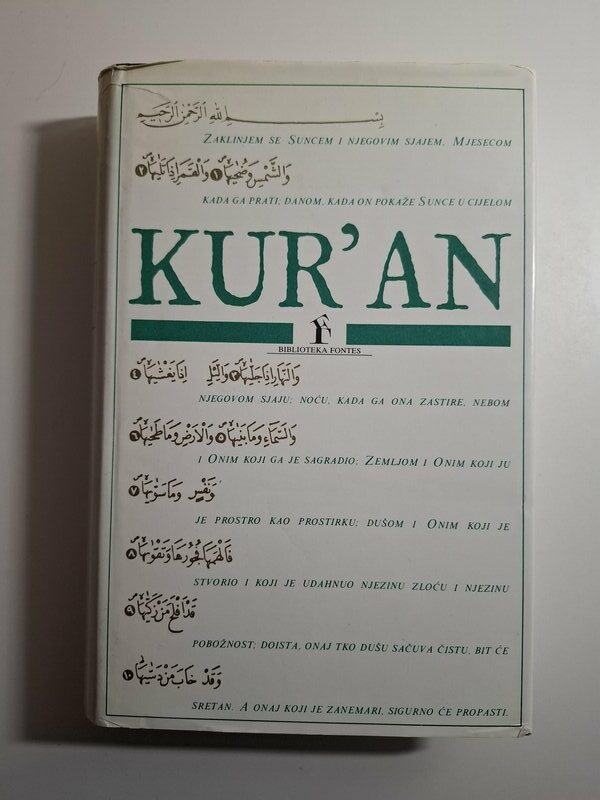 بِسْمِ اللهِ الرَّحْمٰنِ الرَّحِيمِ
ZAKLINJEM SE SUNCEM I NJEGOVIM SJAJEM, MJESECOM
وَالشَّمْسِ وَضُحٰيهَا ١ وَالْقَمَرِ اِذَا تَلٰيهَا ٢
KADA GA PRATI; DANOM, KADA ON POKAŽE SUNCE U CIJELOM
KUR'AN
F
BIBLIOTEKA FONTES
وَالنَّهَارِ اِذَا جَلّٰيهَا ٣ وَالَّيْلِ اِذَا يَغْشٰيهَا ٤
NJEGOVOM SJAJU; NOĆU, KADA GA ONA ZASTIRE, NEBOM
وَالسَّمَاءِ وَمَا بَنٰيهَا ٥ وَالْاَرْضِ وَمَا طَحٰيهَا ٦
I ONIM KOJI GA JE SAGRADIO; ZEMLJOM I ONIM KOJI JU
وَنَفْسٍ وَمَا سَوّٰيهَا ٧
JE PROSTRO KAO PROSTIRKU; DUŠOM I ONIM KOJI JE
فَاَلْهَمَهَا فُجُورَهَا وَتَقْوٰيهَا ٨
STVORIO I KOJI JE UDAHNUO NJEZINU ZLOĆU I NJEZINU
قَدْ اَفْلَحَ مَنْ زَكّٰيهَا ٩
POBOŽNOST; DOISTA, ONAJ TKO DUŠU SAČUVA ČISTU, BIT ĆE
وَقَدْ خَابَ مَنْ دَسّٰيهَا ١٠
SRETAN. A ONAJ KOJI JE ZANEMARI, SIGURNO ĆE PROPASTI.